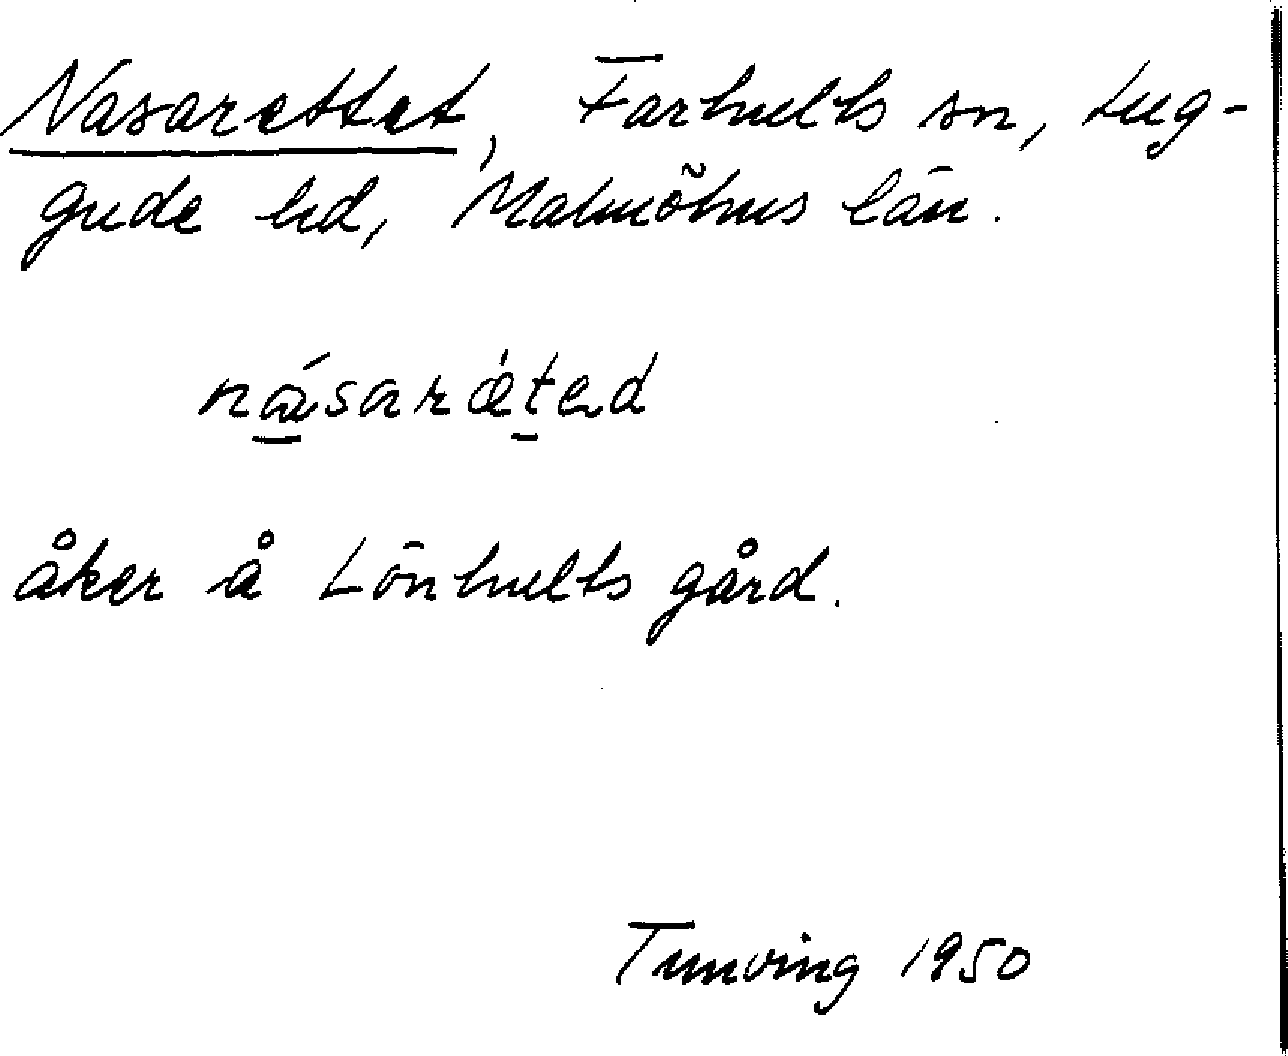 Nasarettet, Farhults sn, Lug-
gude hd, Malmöhus län.
násarǽted
åker å Lönhults gård.
Tunving 1950